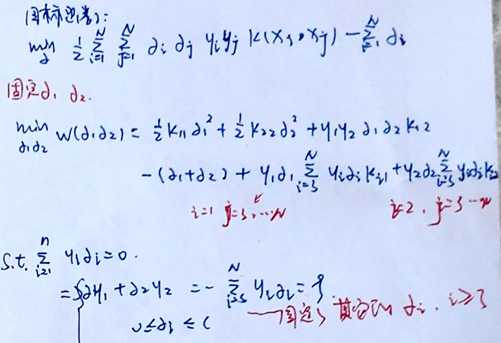 目标函数:
min α 1/2 Σ_{i=1}^{N} Σ_{j=1}^{N} α_i α_j y_i y_j K(x_i, x_j) - Σ_{i=1}^{N} α_i
固定α_1 α_2.
min α_1α_2 W(α_1α_2) = 1/2 K_11 α_1^2 + 1/2 K_22 α_2^2 + y_1 y_2 α_1 α_2 K_12
-(α_1+α_2) + y_1 α_1 Σ_{i=3}^{N} y_i α_i K_i1 + y_2 α_2 Σ_{i=3}^{N} y_i α_i K_i2
i=1 j=3, ...N i=2, j=3 ...N
S.t. Σ_{i=1}^{n} y_i α_i = 0.
= α_1 y_1 + α_2 y_2 = - Σ_{i=3}^{N} y_i α_i = ς
0 ≤ α_i ≤ C 固定了 其它的 α_i, i≥3